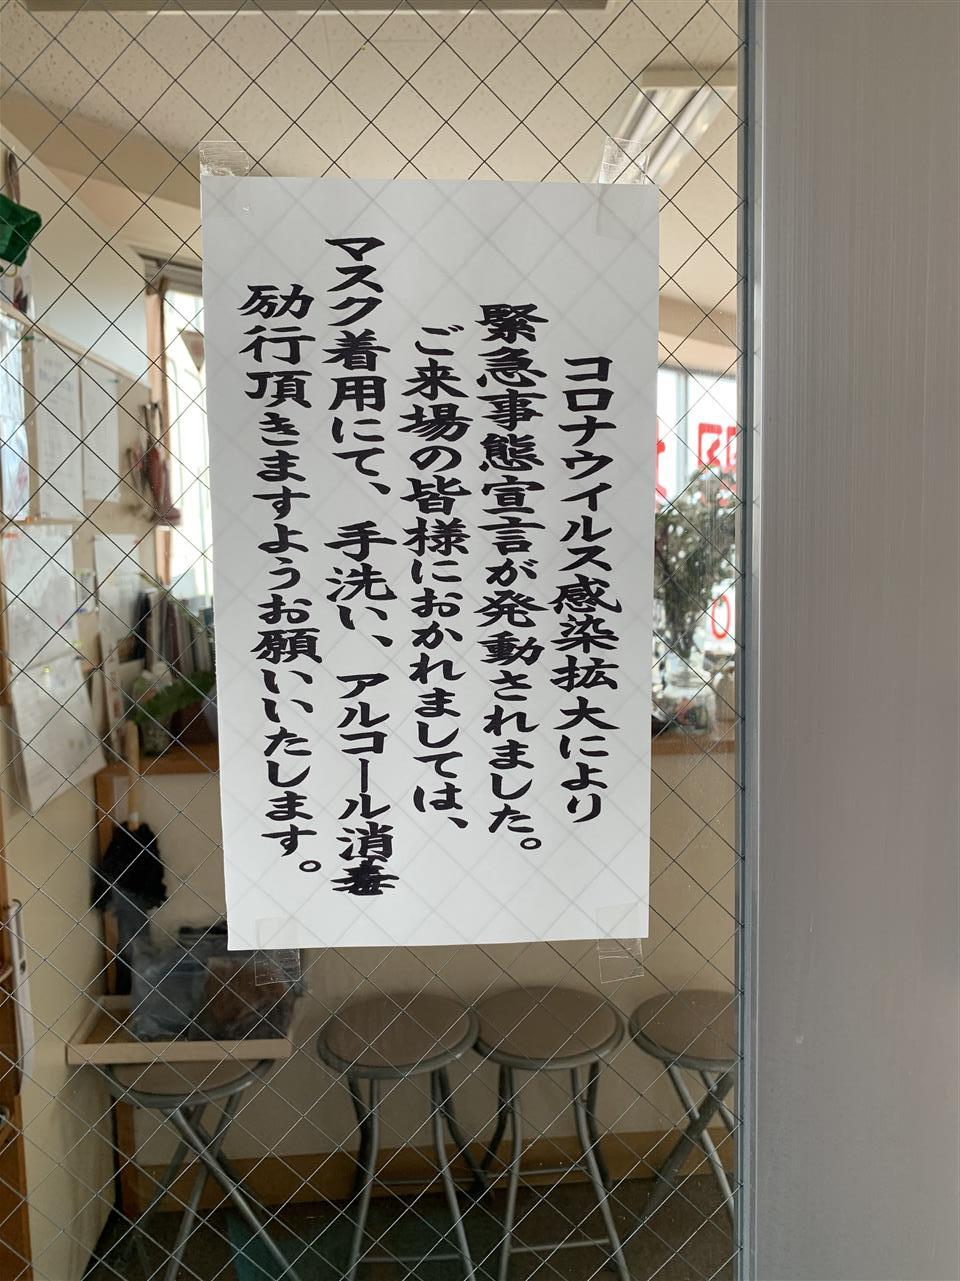 コロナウイルス感染拡大により
緊急事態宣言が発動されました。
ご来場の皆様におかれましては、
マスク着用にて、手洗い、アルコール消毒
励行頂きますようお願いいたします。